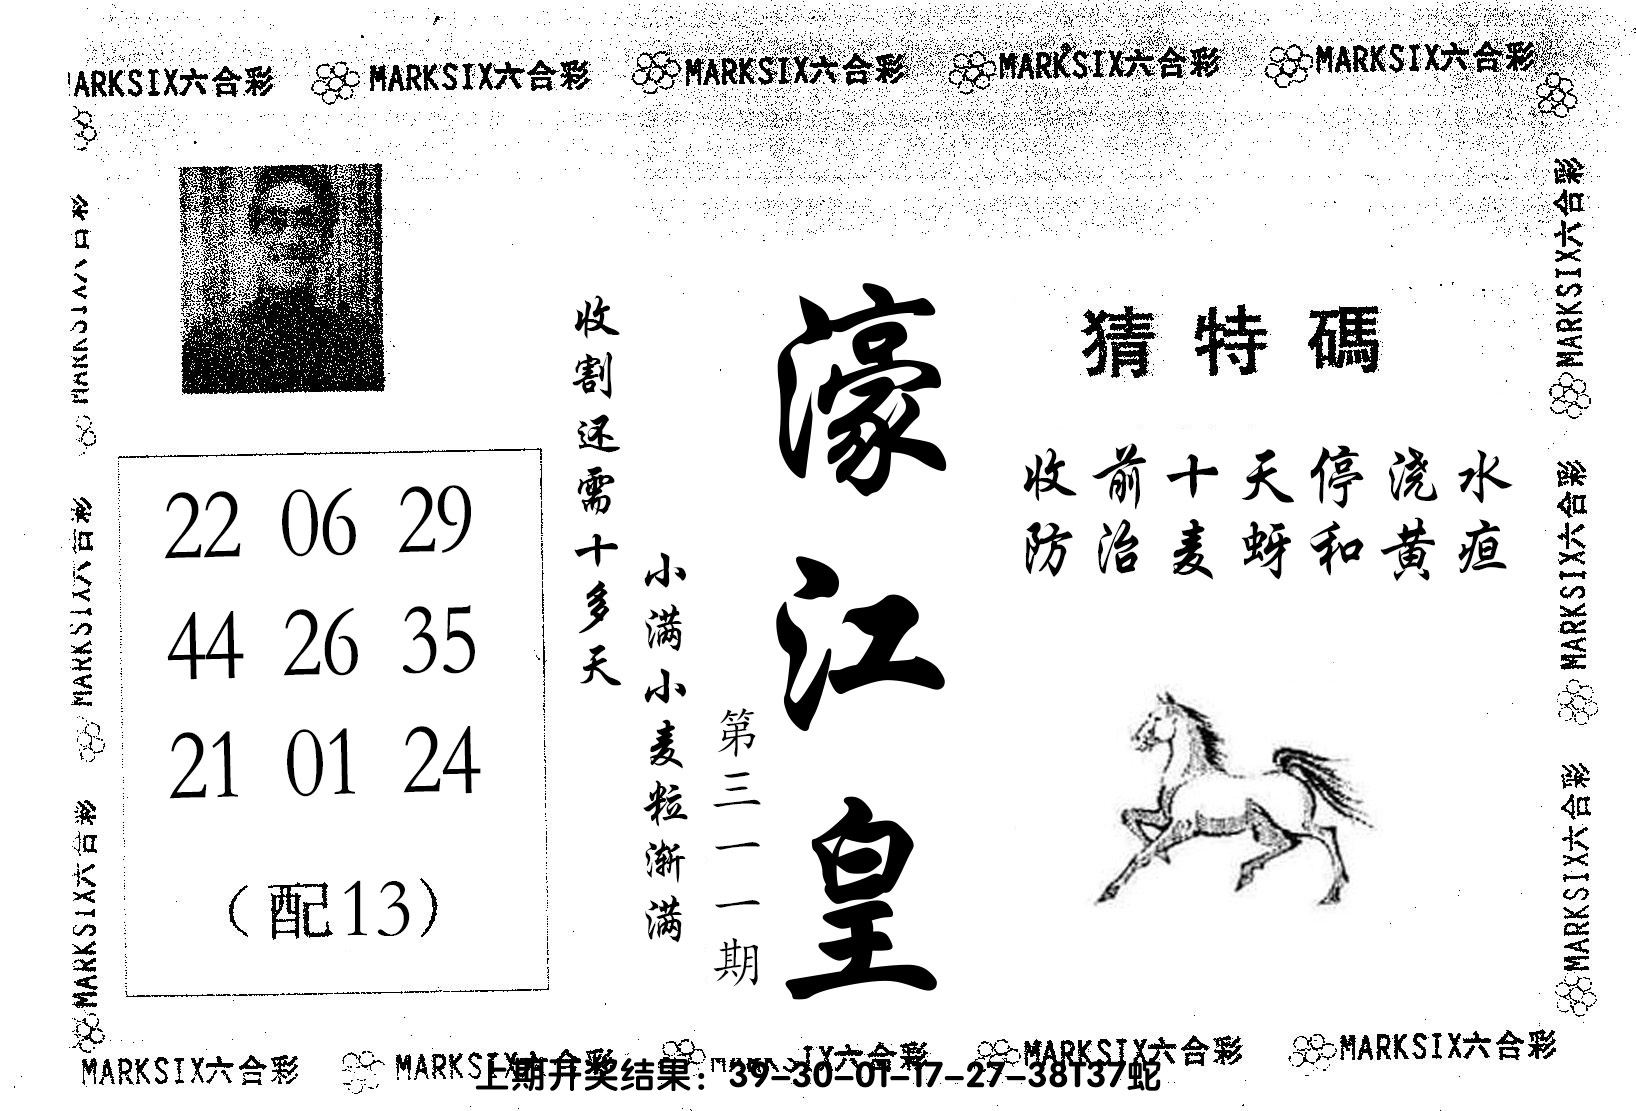 MARKSIX六合彩 MARKSIX六合彩 MARKSIX六合彩 MARKSIX六合彩 MARKSIX六合彩
MARKSIX六合彩
MARKSIX六合彩
MARKSIX六合彩
MARKSIX六合彩
MARKSIX六合彩
MARKSIX六合彩
猜特碼
收前十天停浇水
防治麦蚜和黄疸
濠江皇
第三一一期
小满小麦粒渐满
收割还需十多天
22 06 29
44 26 35
21 01 24
（配13）
MARKSIX六合彩 MARKSIX六合彩 MARKSIX六合彩 MARKSIX六合彩 MARKSIX六合彩
上期开奖结果：39-30-01-17-27-38T37蛇